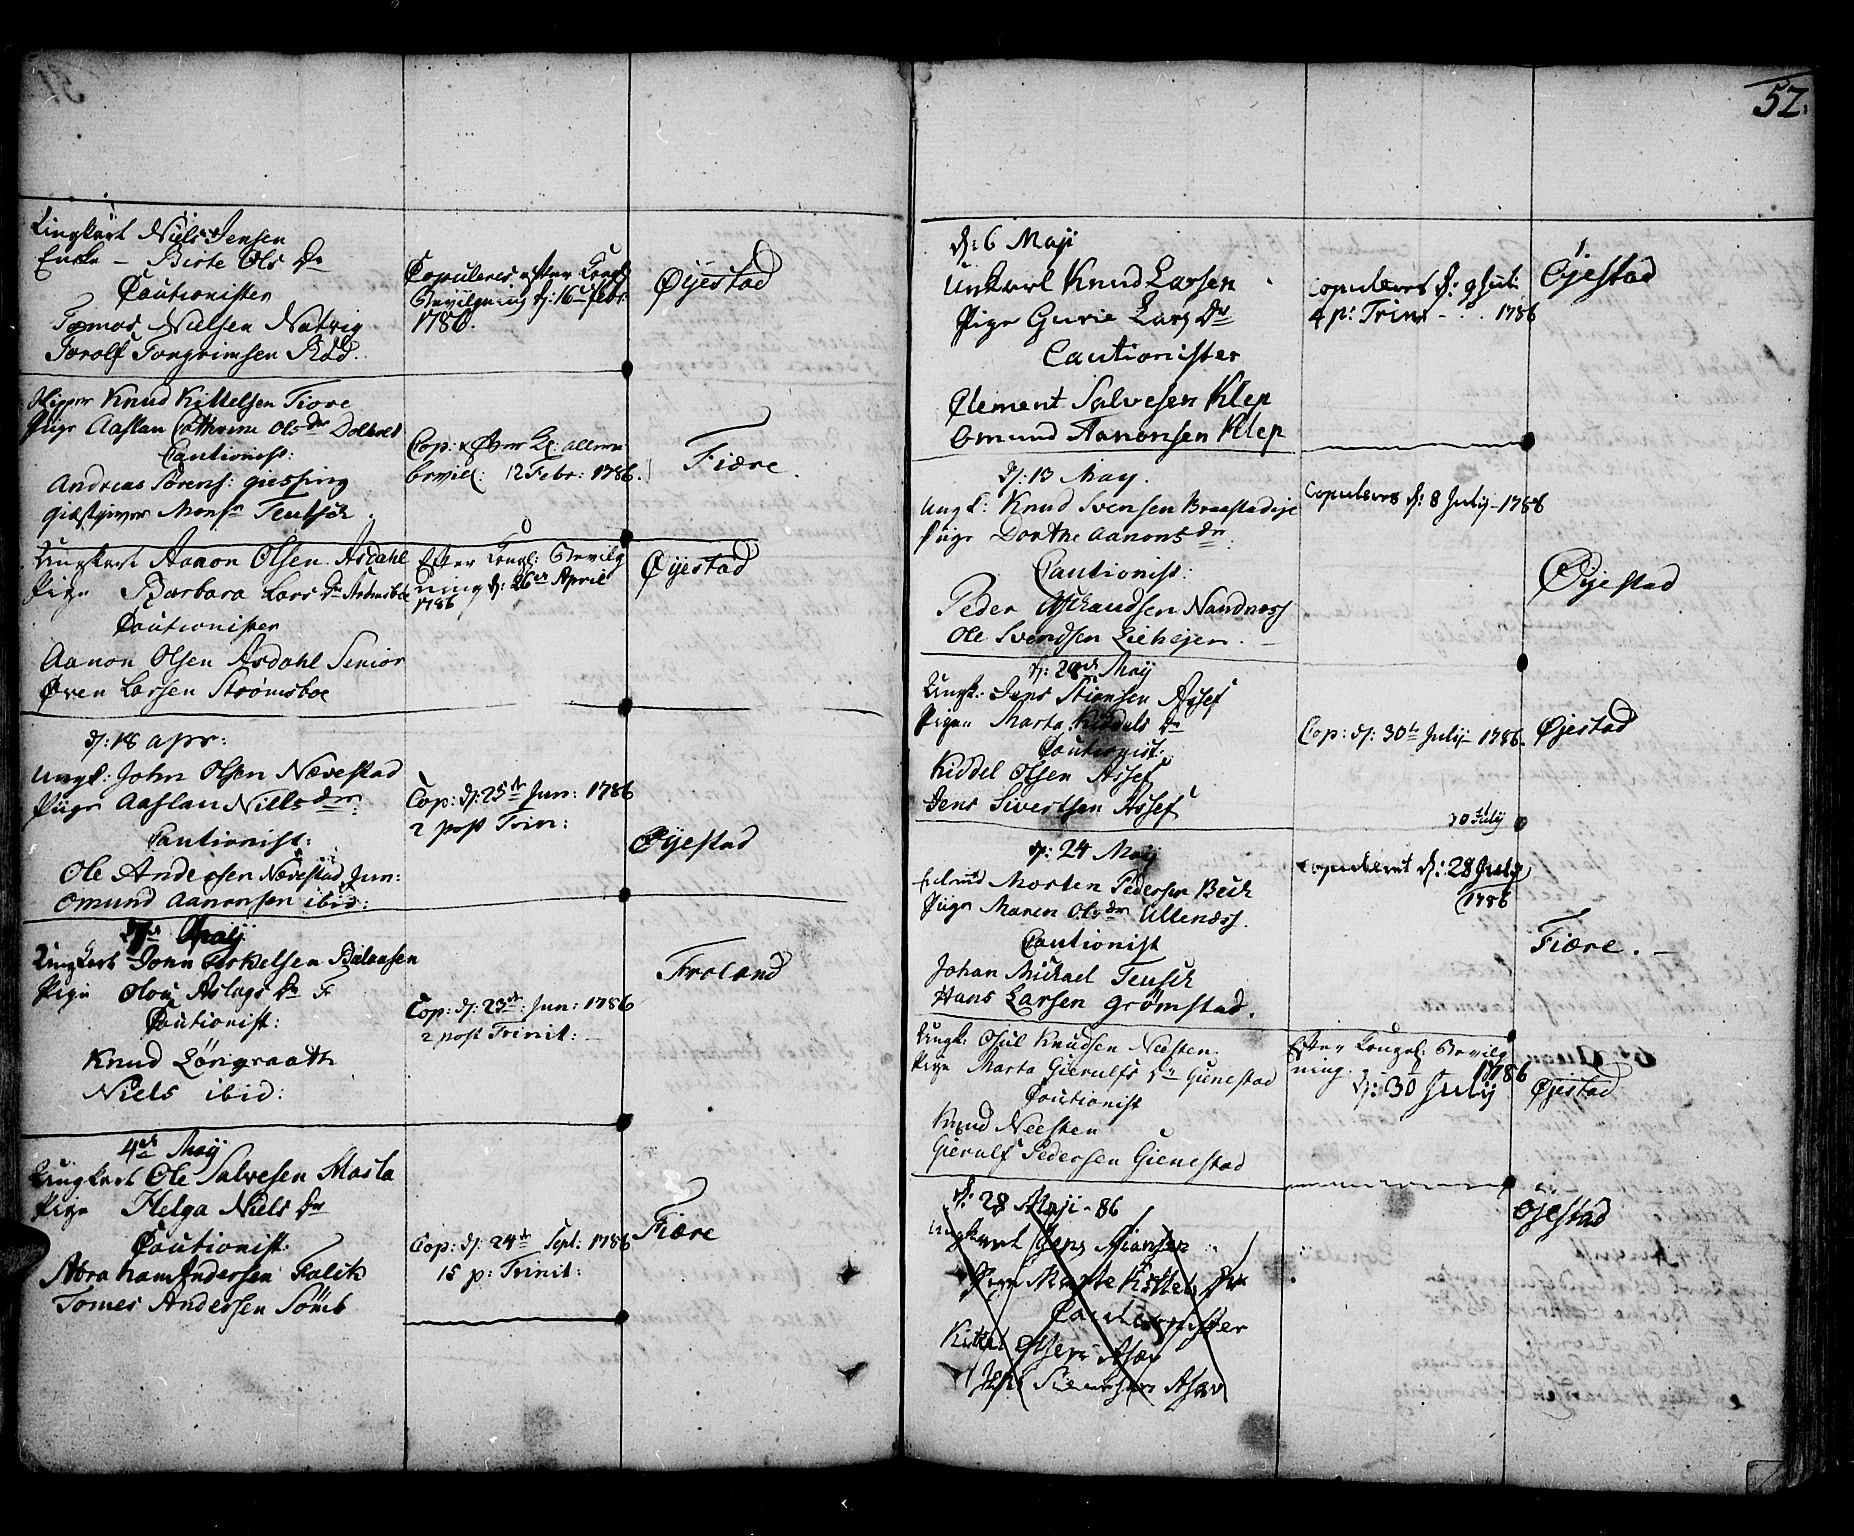 Ungkarl Niels Jensen
Encke - Birte Ols Dr
Cautionister
Tomas Nielsen Natvig
Torolf Torgrimsen
Copuleres efter Kongl
Bevilgning d: 16 Febr:
1786.
Øyestad
Skipper Knud Kittelsen Fiære
Piige Aaslau Cathrine Olsdr Dolholt
Cautionist:
Andreas Sørens: giessing
giestgiver Monsr Teutsch
Cop: efter K: allern
bevill: 12 Febr: 1786.
Fiære.
Ungkarl Aanon Olsen Asdahl
Pige Barbara Lars Dr Strömsboe
Cautionister
Aanon Olsen Asdahl Senior
Øven Larsen Strømsboe
Efter Kongl: Bevilg
ning d: 26de April
1786
Øyestad
d: 18 apr:
Ungk: John Olsen Nævestad
Piige Aaslau Nielsdr
Cautionist:
Ole Andersen Nævestad Jun:
Omund Aanonsen ibid:
Cop: d: 25de Jun: 1786
2 post Trin:
Øyestad
Maij
Ungkarl John Terkelsen
Pige Aslags Dr F
Cautionist:
Knud Löngraath
Niels ibid:
Cop: d: 23de Jun: 1786
2 post Trinit: -
Froland
4de Maij
Ungkarl Ole Salvesen Stasla
Pige Helga Niels Dr
Cautionist:
Abraham Andersen Falch
Tomes Andersen Sömb
Cop: d: 24de Sept: 1786
15 p: Trinit:
Fiære
52.
d: 6 Maji
Unkarl Knud Larsen
Pige Gurie Lars Dr
Cautionister
Clement Salvesen Klep
Omund Aanonsen Klep
Copuleret d: 9 Juli
4 p: Trin - . . 1786
Öjestad
d: 13 May.
Ungk: Knud Svensen Braastad
Piige Dorthe Aanonsdr
Cautionist:
Peder Nandness
Ole Svendsen Liehejen.
Copuleres d: 8 July - 1786
Øijestad
d: 20de Maij
Ungk: Jens Stiansen Assef
Pigen Marta Dr
Cautionist:
Kiddel Olsen Assef
Jens Sivertsen Assef
Cop: d: 30te July - 1786.
Øjestad
30 July
d: 24 Maij
Morten Pedersen Bech
Piige Maren Olsdr Ullenæss.
Cautionist
Johan Michael Teusch
Hans Larsen grømstad.
Copuleret d: 28 July
1786
Fiære. -
Ungk: Osul Knudsen Neesten.
Pige Marta Gierulfs Dr Gunestad
Cautionist
Knud Neesten
Gierulf Pedersen Gienestad
Efter Kongel: Bevilg
ning. 1786
d: 30 July
Øjestad
d: 28 Maji - 86
Ungkarl Jens Stiansen
Pige Marte Kittels Dr
Cautionister
Kittel Olsen Asæv
Jens Siversen Asæv
Öjestad